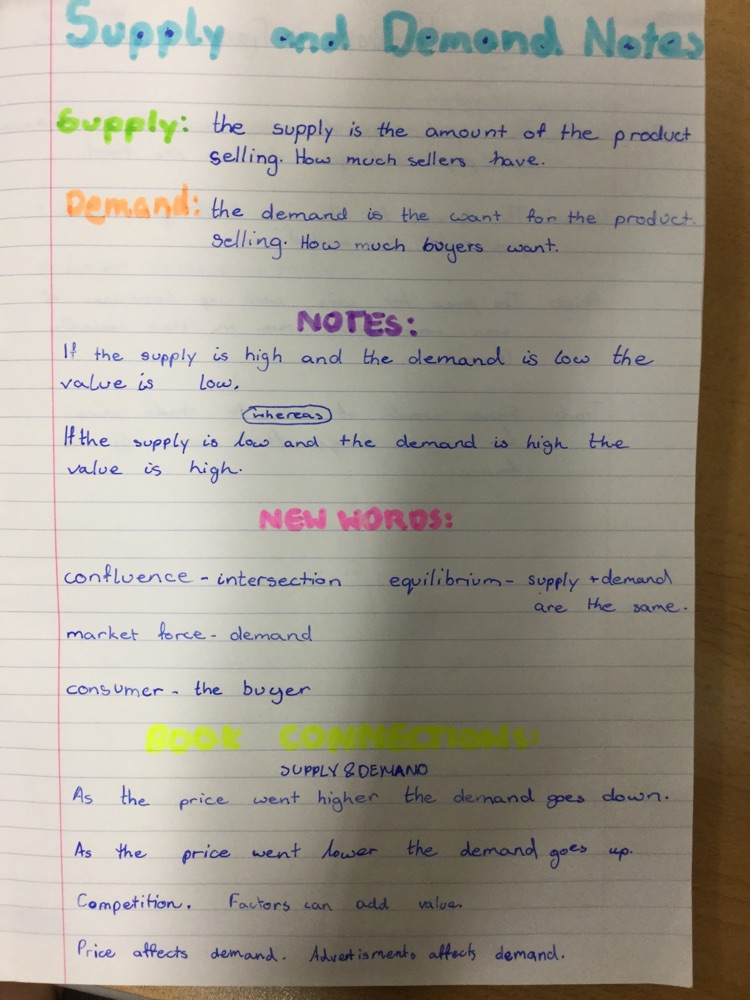 Supply and Demand Notes
Supply: the supply is the amount of the product
selling. How much sellers have.
Demand: the demand is the want for the product.
selling. How much buyers want.
NOTES:
If the supply is high and the demand is low the
value is low.
whereas
If the supply is low and the demand is high the
value is high.
NEW WORDS:
confluence - intersection equilibrium - supply + demand
are the same.
market force - demand
consumer - the buyer
BOOK CONNECTIONS:
SUPPLY & DEMAND
As the price went higher the demand goes down.
As the price went lower the demand goes up.
Competition. Factors can add value.
Price affects demand. Advertisments affects demand.